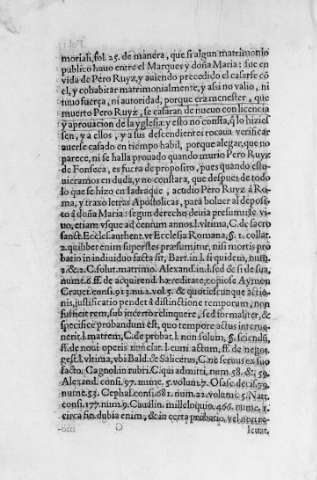 moriali, fol. 25. de manera, que si algun matrimonio
publico huuo entre el Marques y doña Maria: fue en
vida de Pero Ruyz, y auiendo precedido el casarse cō
el, y cohabitar matrimonialmente, y assi no valio, ni
tuuo fuerça, ni autoridad, porque era menester, que
muerto Pero Ruyz, se casaran de nueuo con licencia
y aprouacion de la yglesia: y esto no consta, q̃ lo hizies
sen, y a ellos, y a sus descendientes tocaua verificar
auerse casado en tiempo habil, porque alegar, que no
parece, ni se halla prouado quando murio Pero Ruyz
de Fonseca, es fuera de proposito, pues quando estu-
uieramos en duda, y no constara, que despues de todo
lo que se hizo en Iadraque, acudio Pero Ruyz á Ro-
ma, y traxo letras Apostolicas, para boluer al deposi-
to á doña Maria: segun derecho deuia presumirse vi-
uo, etiam vsque ad centum annos. l. vltima, C. de sacro
sanct. Eccles. authent. vt Ecclesia Romana, §. 1. collat.
2. quilibet enim superstes præsumitur, nisi mortis pro
batio in indiuiduo facta sit, Bart. in l. si quidem, num.
1. & 2. C. solut. matrimo. Alexand. in l. sed & si de sua,
nume. 6. ff. de acquirend. hæreditate, copiose Aymon
Crauet. consi. 913. nu. 2. vol. 5. & quotiescunque actio-
nis, iustificatio pendet á distinctione temporum, non
sufficit rem, sub incerto relinquere, sed formaliter, &
specifice probandum est, quo tempore actus interue-
nerit. l. matrem, C. de probat. l. non solum, §. sciendū,
ff. de noui operis nunciat. l. cum actum, ff. de negot.
gest. l. vltima, vbi Bald. & Salicetus, C. ne seruus ex suo
facto. Cagnol. in rubri. C. qui admitti, num. 58. & 59.
Alexand. consi. 97. num. 5. volum. 7. Osasc. decis. 79.
nume. 53. Cephal. consi. 681. num. 22. volum. 5. Natt.
consi. 177. num. 9. milleloquio. 466. nume. 2.
circa fin. dubia enim, & in certa probatio, vel